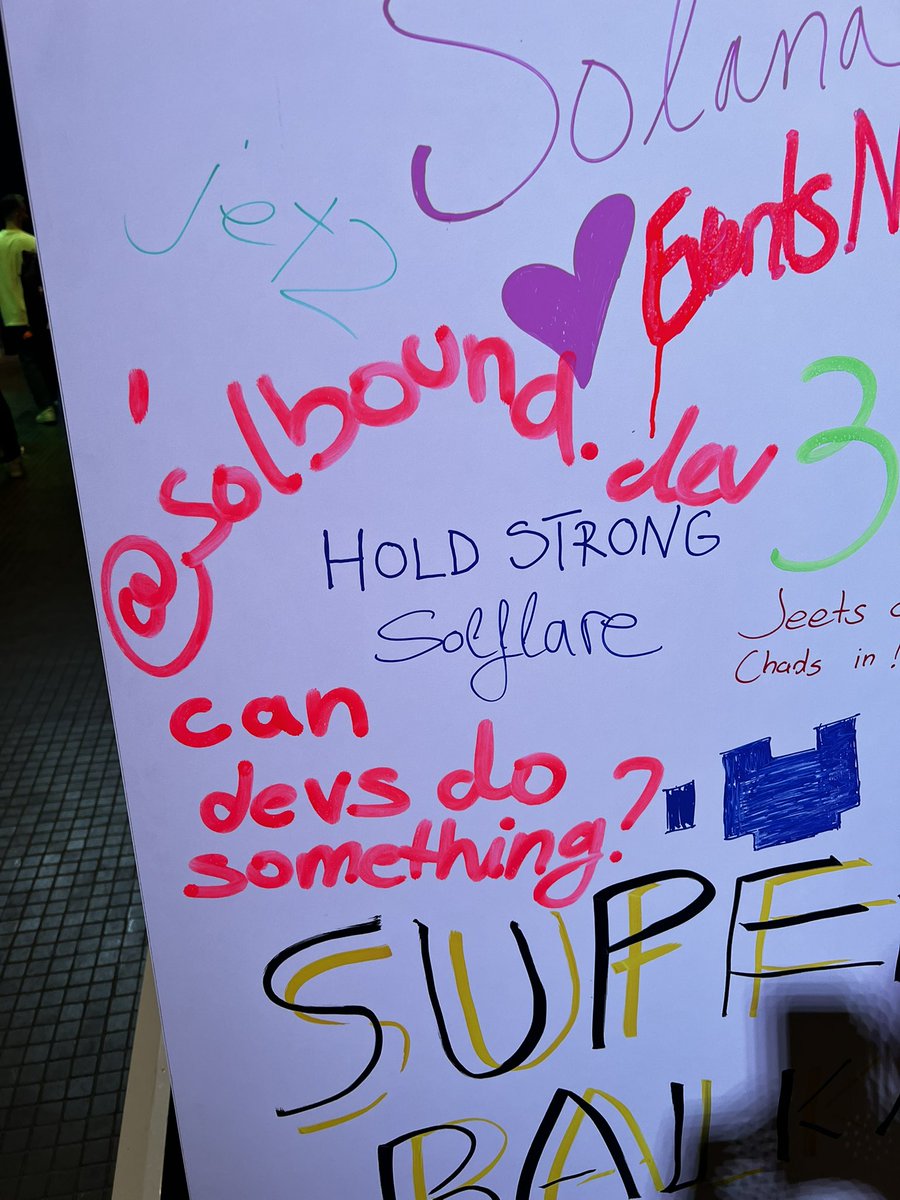 Solana
jex
EventsN
@solbound.dev
3
HOLD STRONG
Solflare
Jeets
Chads in !
can
devs do
something?
SUPE
BALKA